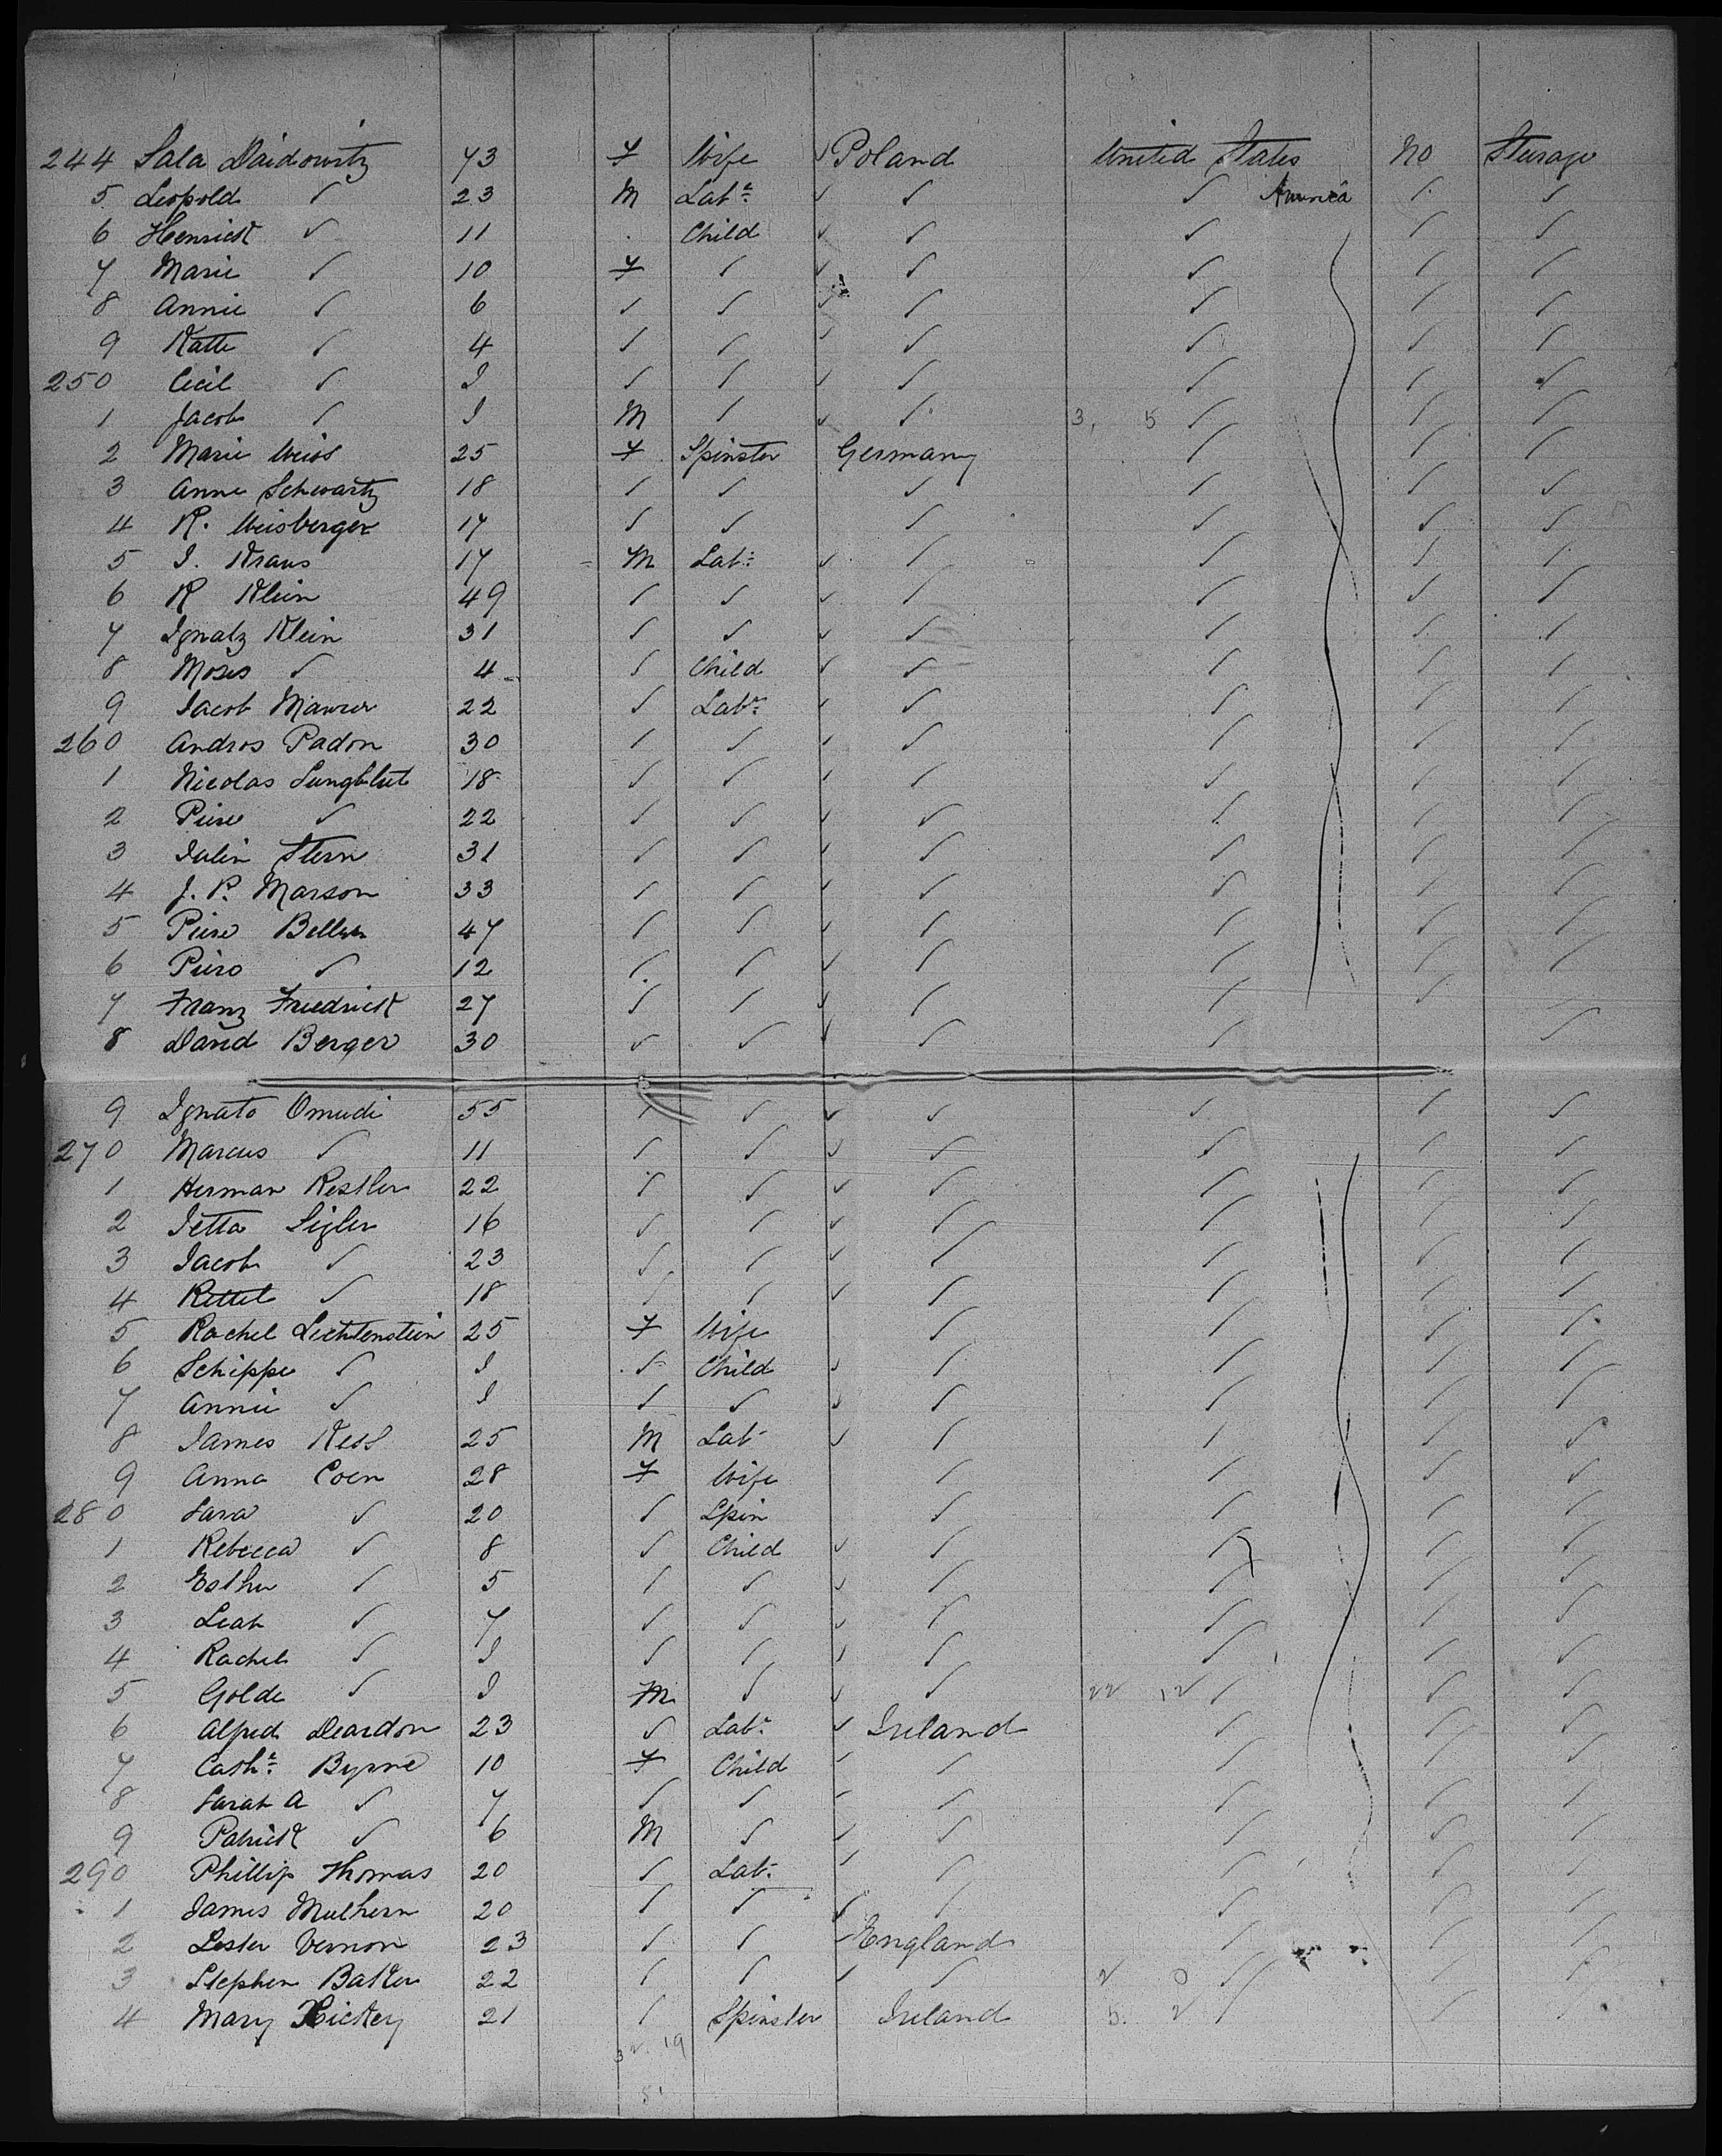 244 Sala Daidowitz 43 F Wife ✓ Poland United States No Steerage
5 Leopold ✓ 23 M Labr ✓ ✓ ✓ America ✓ ✓
6 Henrick ✓ 11 Child ✓ ✓ ✓ ✓ ✓
7 Marie ✓ 10 F ✓ ✓ ✓ ✓ ✓ ✓
8 Annie ✓ 6 ✓ ✓ ✓ ✓ ✓ ✓ ✓
9 Katte ✓ 4 ✓ ✓ ✓ ✓ ✓ ✓ ✓
250 Cecil ✓ I ✓ ✓ ✓ ✓ ✓ ✓ ✓
1 Jacob ✓ I M ✓ ✓ ✓ 3, 5 ✓ ✓ ✓
2 Marie Weiss 25 F Spinster Germany ✓ ✓ ✓
3 Anne Schwartz 18 ✓ ✓ ✓ ✓ ✓ ✓
4 R. Weisberger 17 ✓ ✓ ✓ ✓ ✓ ✓
5 I. Kraus 17 M Labr ✓ ✓ ✓ ✓ ✓
6 R Klein 49 ✓ ✓ ✓ ✓ ✓ ✓ ✓
7 Ignatz Klein 31 ✓ ✓ ✓ ✓ ✓ ✓ ✓
8 Moses ✓ 4 ✓ Child ✓ ✓ ✓ ✓ ✓
9 Jacob Maurer 22 ✓ Labr ✓ ✓ ✓ ✓ ✓
260 Andros Padon 30 ✓ ✓ ✓ ✓ ✓ ✓ ✓
1 Nicolas Lungblut 18 ✓ ✓ ✓ ✓ ✓ ✓ ✓
2 Piere ✓ 22 ✓ ✓ ✓ ✓ ✓ ✓ ✓
3 Stern 31 ✓ ✓ ✓ ✓ ✓ ✓ ✓
4 J. P. Marson 33 ✓ ✓ ✓ ✓ ✓ ✓ ✓
5 Piere 47 ✓ ✓ ✓ ✓ ✓ ✓ ✓
6 Piero ✓ 12 ✓ ✓ ✓ ✓ ✓ ✓ ✓
7 Franz Friedrick 27 ✓ ✓ ✓ ✓ ✓ ✓
8 David Berger 30 ✓ ✓ ✓ ✓ ✓ ✓
9 Ignato Omudi 55 ✓ ✓ ✓ ✓ ✓ ✓ ✓
270 Marcus ✓ 11 ✓ ✓ ✓ ✓ ✓ ✓ ✓
1 Herman Restler 22 ✓ ✓ ✓ ✓ ✓ ✓ ✓
2 Jetta Sigler 16 ✓ ✓ ✓ ✓ ✓ ✓ ✓
3 Jacob ✓ 23 ✓ ✓ ✓ ✓ ✓ ✓ ✓
4 Kettel ✓ 18 ✓ ✓ ✓ ✓ ✓ ✓ ✓
5 Rachel Lichtenstein 25 F Wife ✓ ✓ ✓ ✓
6 Schippe ✓ I ✓ Child ✓ ✓ ✓ ✓ ✓
7 Annie ✓ I ✓ ✓ ✓ ✓ ✓ ✓ ✓
8 James Kess 25 M Labr ✓ ✓ ✓ ✓ ✓
9 Anna Coen 28 F Wife ✓ ✓ ✓ ✓
280 Sara ✓ 20 ✓ Spin ✓ ✓ ✓ ✓
1 Rebecca ✓ 8 ✓ Child ✓ ✓ ✓ ✓ ✓
2 Esther ✓ 5 ✓ ✓ ✓ ✓ ✓ ✓ ✓
3 Leah ✓ 7 ✓ ✓ ✓ ✓ ✓ ✓ ✓
4 Rachel ✓ I ✓ ✓ ✓ ✓ ✓ ✓ ✓
5 Golde ✓ I M ✓ ✓ ✓ 22 12 ✓ ✓ ✓
6 Alfred Deardon 23 ✓ Labr ✓ Ireland ✓ ✓ ✓
7 Cathe Byrne 10 F Child ✓ ✓ ✓ ✓ ✓
8 Sarah A ✓ 7 ✓ ✓ ✓ ✓ ✓ ✓ ✓
9 Patrick ✓ 6 M ✓ ✓ ✓ ✓ ✓ ✓
290 Phillip Thomas 20 ✓ Labr ✓ ✓ ✓ ✓ ✓
1 James Mulhern 20 ✓ ✓ ✓ ✓ ✓ ✓ ✓
2 Lester Vernon 23 ✓ ✓ England ✓ ✓ ✓
3 Stephen Batker 22 ✓ ✓ ✓ ✓ 2 0 ✓ ✓ ✓
4 Mary Hickey 21 ✓ Spinster Ireland 5. 2 ✓ ✓ ✓
32. 19
51